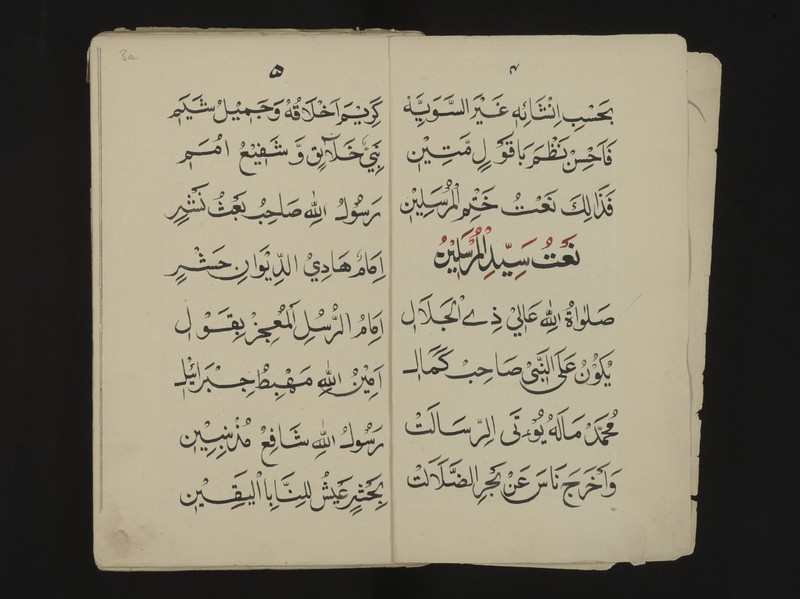 ۴
بَحَسْبِ اِنْشَائِهٖ غَيْرَ السَّوِيَّهْ
فَاَحْسِنْ نَظْمَ بَا قَوْلٍ مَّتِيْن
فَذَالِكَ نَعْتُ خَتْمِ الْمُرْسَلِيْن
نَعْتُ سَيِّدِ الْمُرْسَلِيْنْ
صَلٰواةُ اللهِ عَالِيْ ذِے الْجَلَال
يَكُوْنُ عَلَى النَّبِيْ صَاحِبْ كَمَال
مُحَمَّدْ مَالَهُ يُوْتَى الرِّسَالَتْ
وَاَخْرَجَ نَاسَ عَنْ بَحْرِ الضَّلَالَتْ
3a
۵
كَرِيْمِ اَخْلَاقُهٗ وَجَمِيْلُ شِيَمْ
نَبِيُّ خَلَائِقٍ وَّ شَفِيْعُ اُمَمْ
رَسُوْلُ اللهِ صَاحِبُ بَعْثُ نَشْرٍ
اِمَامٌ هَادِيْ الدِّيْوَانِ حَشْرٍ
اِمَامُ الرُّسُلِ الْمُعْجِزْ بِقَوْلٍ
اَمِيْنُ اللهِ مَهْبِطُ جِبْرَائِلْ
رَسُوْلُ اللهِ شَافِعُ مُذْنِبِيْن
عَيْشُ لِلنَّا بِا الْيَقِيْن